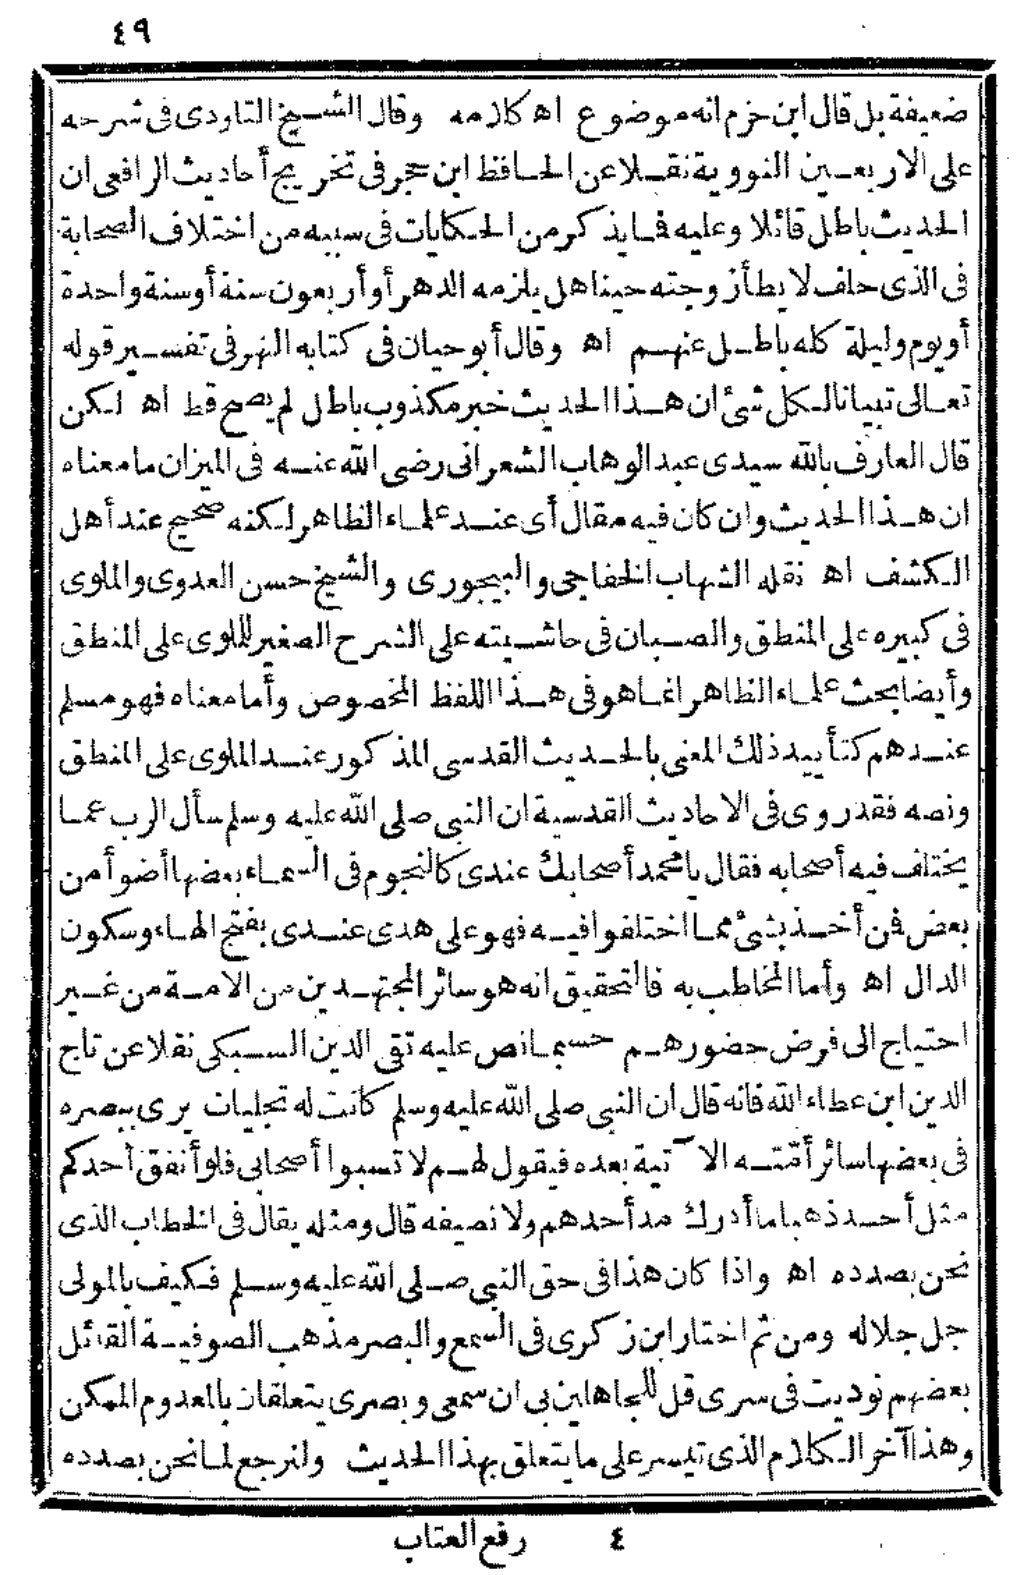 ٤٩
ضعيفة بل قال ابن حزم انه موضوع اه كلامه وقال الشيخ التاودى فى شرحه
على الاربعين النووية نقلا عن الحافظ ابن حجر فى تخريج أحاديث الرافعى ان
الحديث باطل قائلا وعليه فما يذكر من الحكايات فى سببه من اختلاف الصحابة
فى الذى حلف لا يطأ زوجته حينا هل يلزمه الدهر أو أربعون سنة أو سنة واحدة
أو يوم وليلة كله باطل عنهم اه وقال أبو حيان فى كتابه النهر فى تفسير قوله
تعالى تبيانا لكل شئ ان هذا الحديث خبر مكذوب باطل لم يصح قط اه لكن
قال العارف بالله سيدى عبد الوهاب الشعرانى رضى الله عنه فى الميزان ما معناه
ان هذا الحديث وان كان فيه مقال أى عند علماء الظاهر لكنه صحيح عند أهل
الكشف اه نقله الشهاب الخفاجى والبيجورى والشيخ حسن العدوى والملوى
فى كبيره على المنطق والصبان فى حاشيته على الشرح الصغير للملوى على المنطق
وأيضا بحث علماء الظاهر انما هو فى هذا اللفظ المخصوص وأما معناه فهو مسلم
عندهم كتأييد ذلك المعنى بالحديث القدسى المذكور عند الملوى على المنطق
ونصه فقد روى فى الاحاديث القدسية ان النبى صلى الله عليه وسلم سأل الرب عما
يختلف فيه أصحابه فقال يا محمد أصحابك عندى كالنجوم فى السماء بعضها أضوأ من
بعض فن أخذ بشئ مما اختلفوا فيه فهو على هدى عندى بفتح الهاء وسكون
الدال اه وأما المخاطب به فالتحقيق انه هو سائر المجتهدين من الامة من غير
احتياج الى فرض حضورهم حسبما نص عليه تقى الدين السبكى نقلا عن تاج
الدين ابن عطاء الله فانه قال ان النبى صلى الله عليه وسلم كانت له تجليات يرى ببصره
فى بعضها سائر أمّته الآتية بعده فيقول لهم لا تسبوا أصحابى فلو أنفق أحدكم
مثل أحد ذهبا ما أدرك مد أحدهم ولا نصيفه قال ومثله يقال فى الخطاب الذى
نحن بصدده اه واذا كان هذا فى حق النبى صلى الله عليه وسلم فكيف بالمولى
جل جلاله ومن ثم اختار ابن زكرى فى السمع والبصر مذهب الصوفية القائل
بعضهم نوديت فى سرى قل للجاهلين بى ان سمعى وبصرى يتعلقان بالمعدوم الممكن
وهذا آخر الكلام الذى تيسر على ما يتعلق بهذا الحديث ولنرجع لما نحن بصدده
٤ رفع العتاب